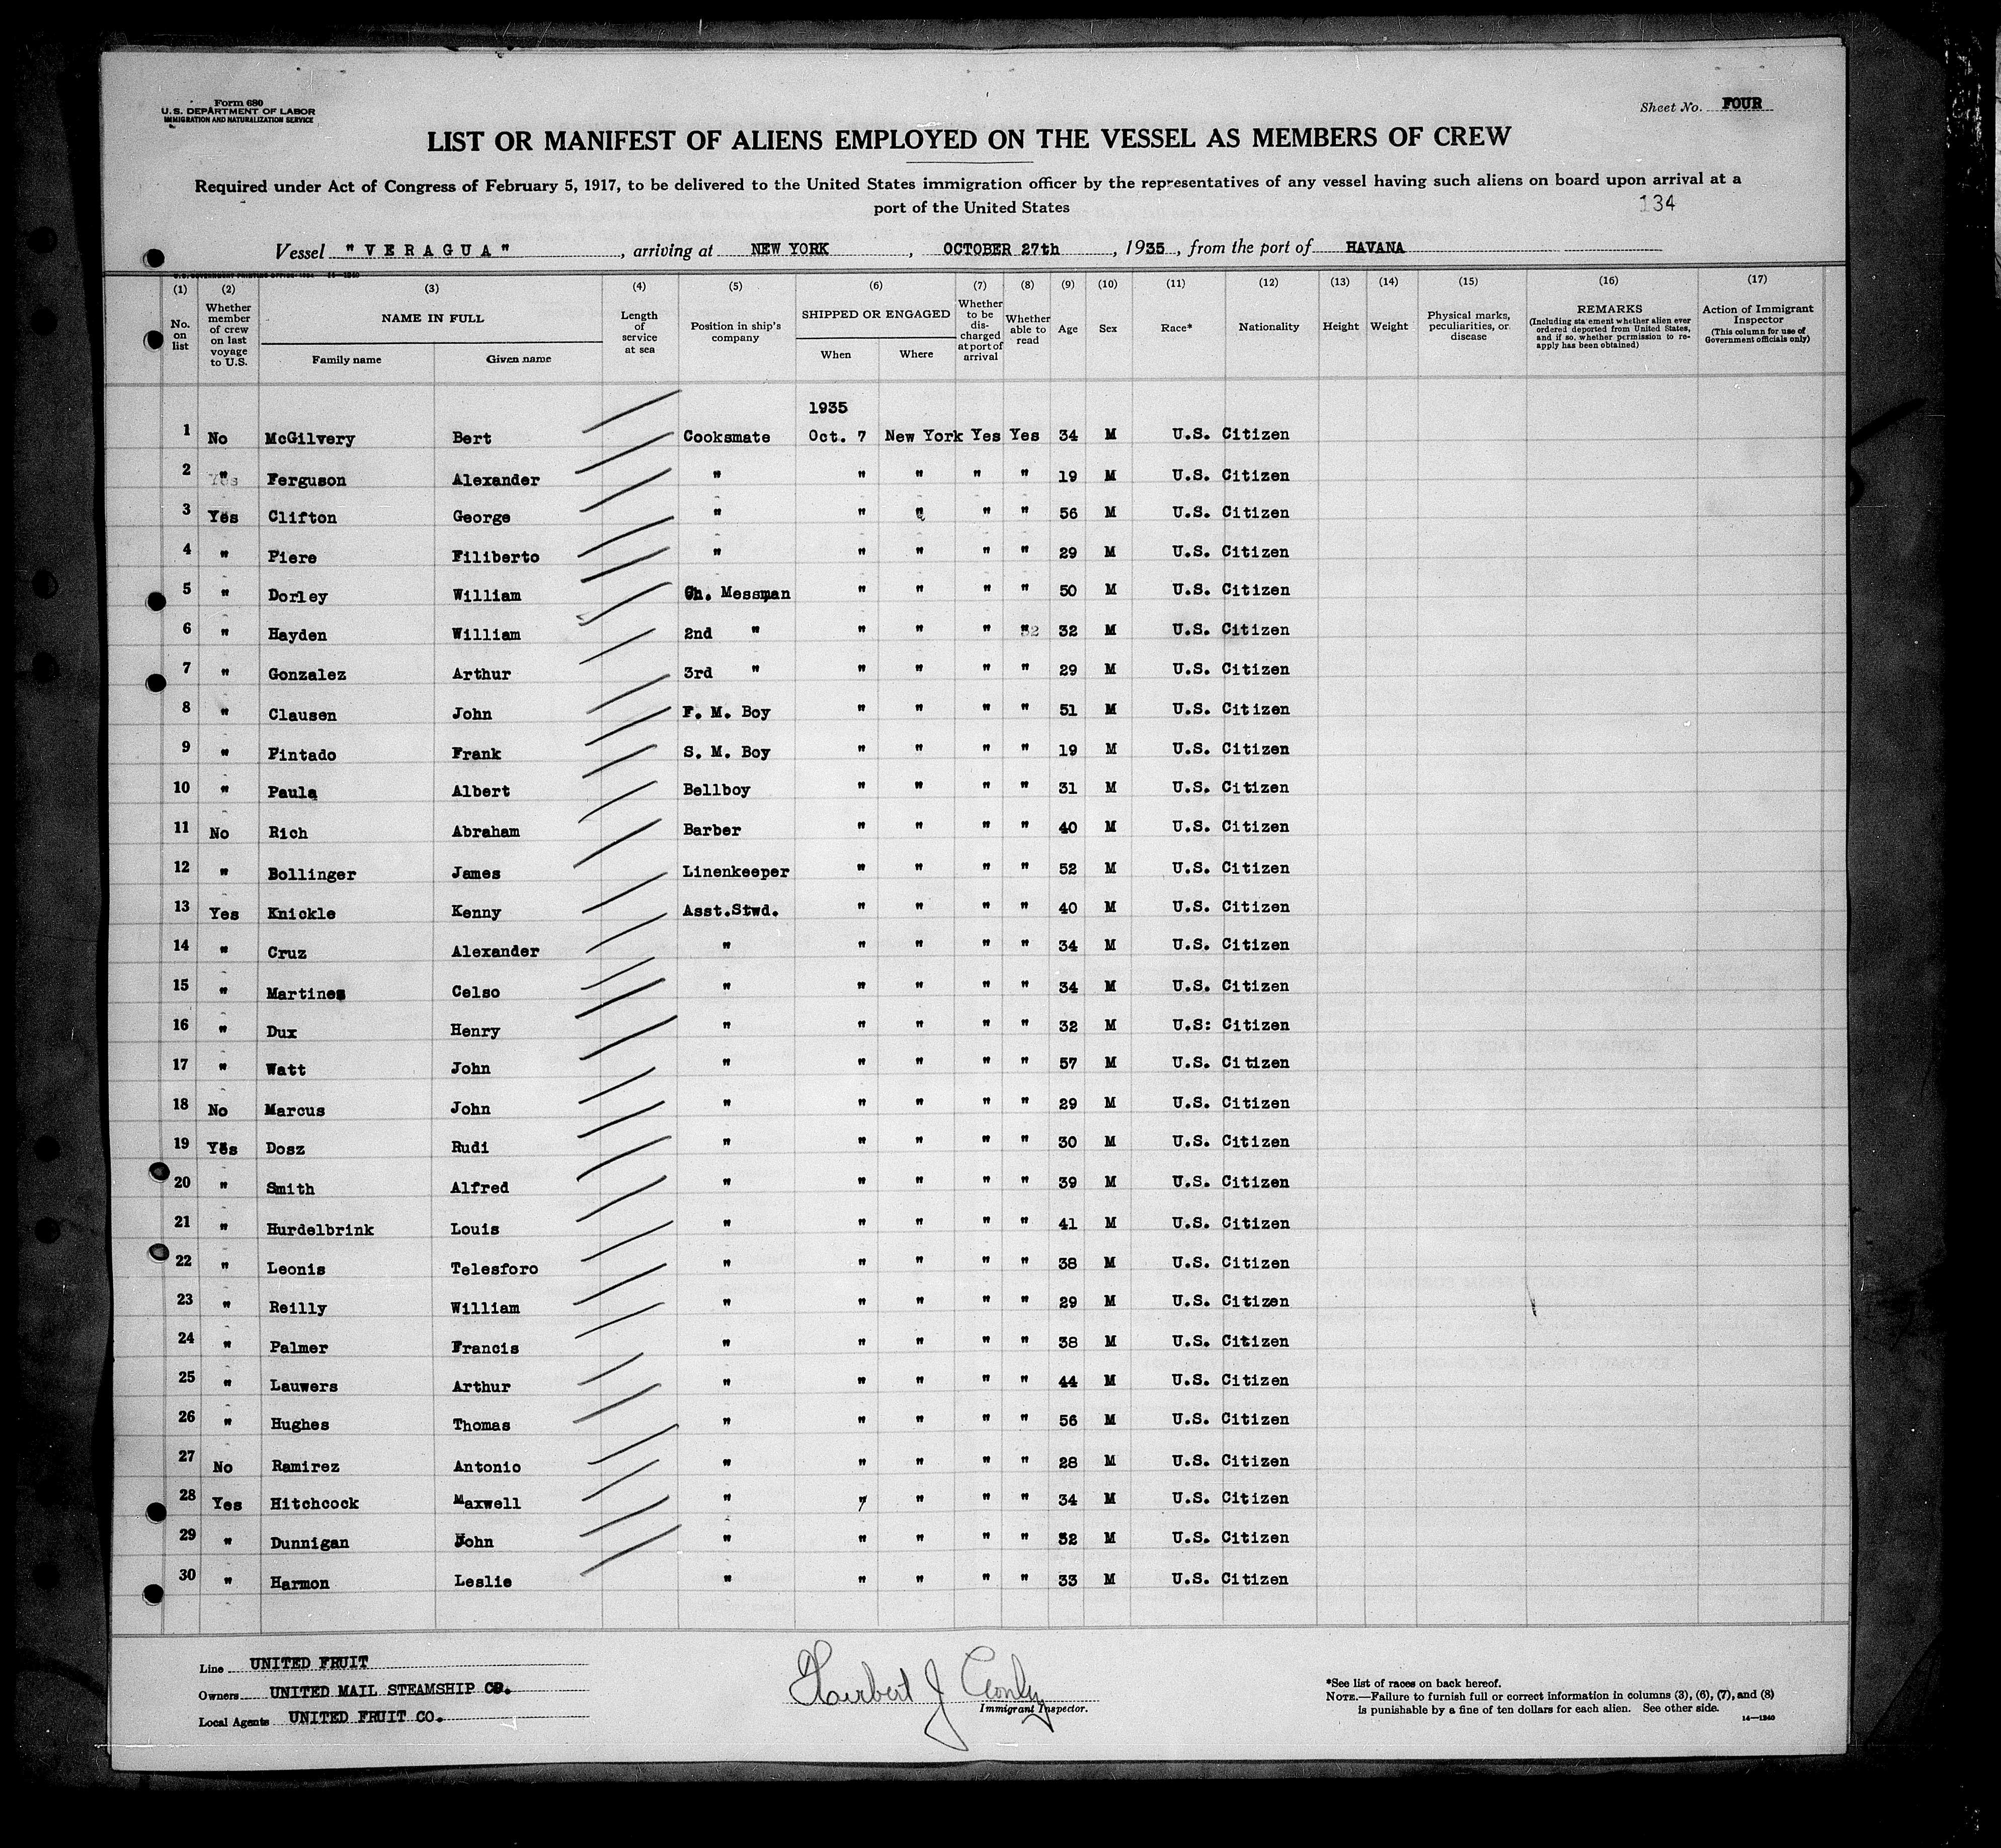 Form 680
U. S. DEPARTMENT OF LABOR
IMMIGRATION AND NATURALIZATION SERVICE
Sheet No. FOUR
LIST OR MANIFEST OF ALIENS EMPLOYED ON THE VESSEL AS MEMBERS OF CREW
Required under Act of Congress of February 5, 1917, to be delivered to the United States immigration officer by the representatives of any vessel having such aliens on board upon arrival at a
port of the United States
134
Vessel "VERAGUA", arriving at NEW YORK, OCTOBER 27th, 1935, from the port of HAVANA
(1) (2) (3) (4) (5) (6) (7) (8) (9) (10) (11) (12) (13) (14) (15) (16) (17)
No. on list
Whether member of crew on last voyage to U.S.
NAME IN FULL
Family name Given name
Length of service at sea
Position in ship's company
SHIPPED OR ENGAGED
When Where
Whether to be discharged at port of arrival
Whether able to read
Age
Sex
Race*
Nationality
Height
Weight
Physical marks, peculiarities, or disease
REMARKS
(Including statement whether alien ever ordered deported from United States, and if so, whether permission to reapply has been obtained)
Action of Immigrant Inspector
(This column for use of Government officials only)
1935
1 No McGilvery Bert Cooksmate Oct. 7 New York Yes Yes 34 M U.S. Citizen
2 " Ferguson Alexander " " " " " 19 M U.S. Citizen
3 Yes Clifton George " " " " " 56 M U.S. Citizen
4 " Piere Filiberto " " " " " 29 M U.S. Citizen
5 " Dorley William Ch. Messman " " " " 50 M U.S. Citizen
6 " Hayden William 2nd " " " " " 32 M U.S. Citizen
7 " Gonzalez Arthur 3rd " " " " " 29 M U.S. Citizen
8 " Clausen John F. M. Boy " " " " 51 M U.S. Citizen
9 " Pintado Frank S. M. Boy " " " " 19 M U.S. Citizen
10 " Paula Albert Bellboy " " " " 31 M U.S. Citizen
11 No Rich Abraham Barber " " " " 40 M U.S. Citizen
12 " Bollinger James Linenkeeper " " " " 52 M U.S. Citizen
13 Yes Knickle Kenny Asst.Stwd. " " " " 40 M U.S. Citizen
14 " Cruz Alexander " " " " " 34 M U.S. Citizen
15 " Martines Celso " " " " " 34 M U.S. Citizen
16 " Dux Henry " " " " " 32 M U.S: Citizen
17 " Watt John " " " " " 57 M U.S. Citizen
18 No Marcus John " " " " " 29 M U.S. Citizen
19 Yes Dosz Rudi " " " " " 30 M U.S. Citizen
20 " Smith Alfred " " " " " 39 M U.S. Citizen
21 " Hurdelbrink Louis " " " " " 41 M U.S. Citizen
22 " Leonis Telesforo " " " " " 38 M U.S. Citizen
23 " Reilly William " " " " " 29 M U.S. Citizen
24 " Palmer Francis " " " " " 38 M U.S. Citizen
25 " Lauwers Arthur " " " " " 44 M U.S. Citizen
26 " Hughes Thomas " " " " " 56 M U.S. Citizen
27 No Ramirez Antonio " " " " " 28 M U.S. Citizen
28 Yes Hitchcock Maxwell " " " " " 34 M U.S. Citizen
29 " Dunnigan John " " " " " 32 M U.S. Citizen
30 " Harmon Leslie " " " " " 33 M U.S. Citizen
Line UNITED FRUIT
Owners UNITED MAIL STEAMSHIP CO.
Local Agents UNITED FRUIT CO.
Herbert J
Immigrant Inspector.
*See list of races on back hereof.
NOTE.—Failure to furnish full or correct information in columns (3), (6), (7), and (8)
is punishable by a fine of ten dollars for each alien. See other side.
14—1240